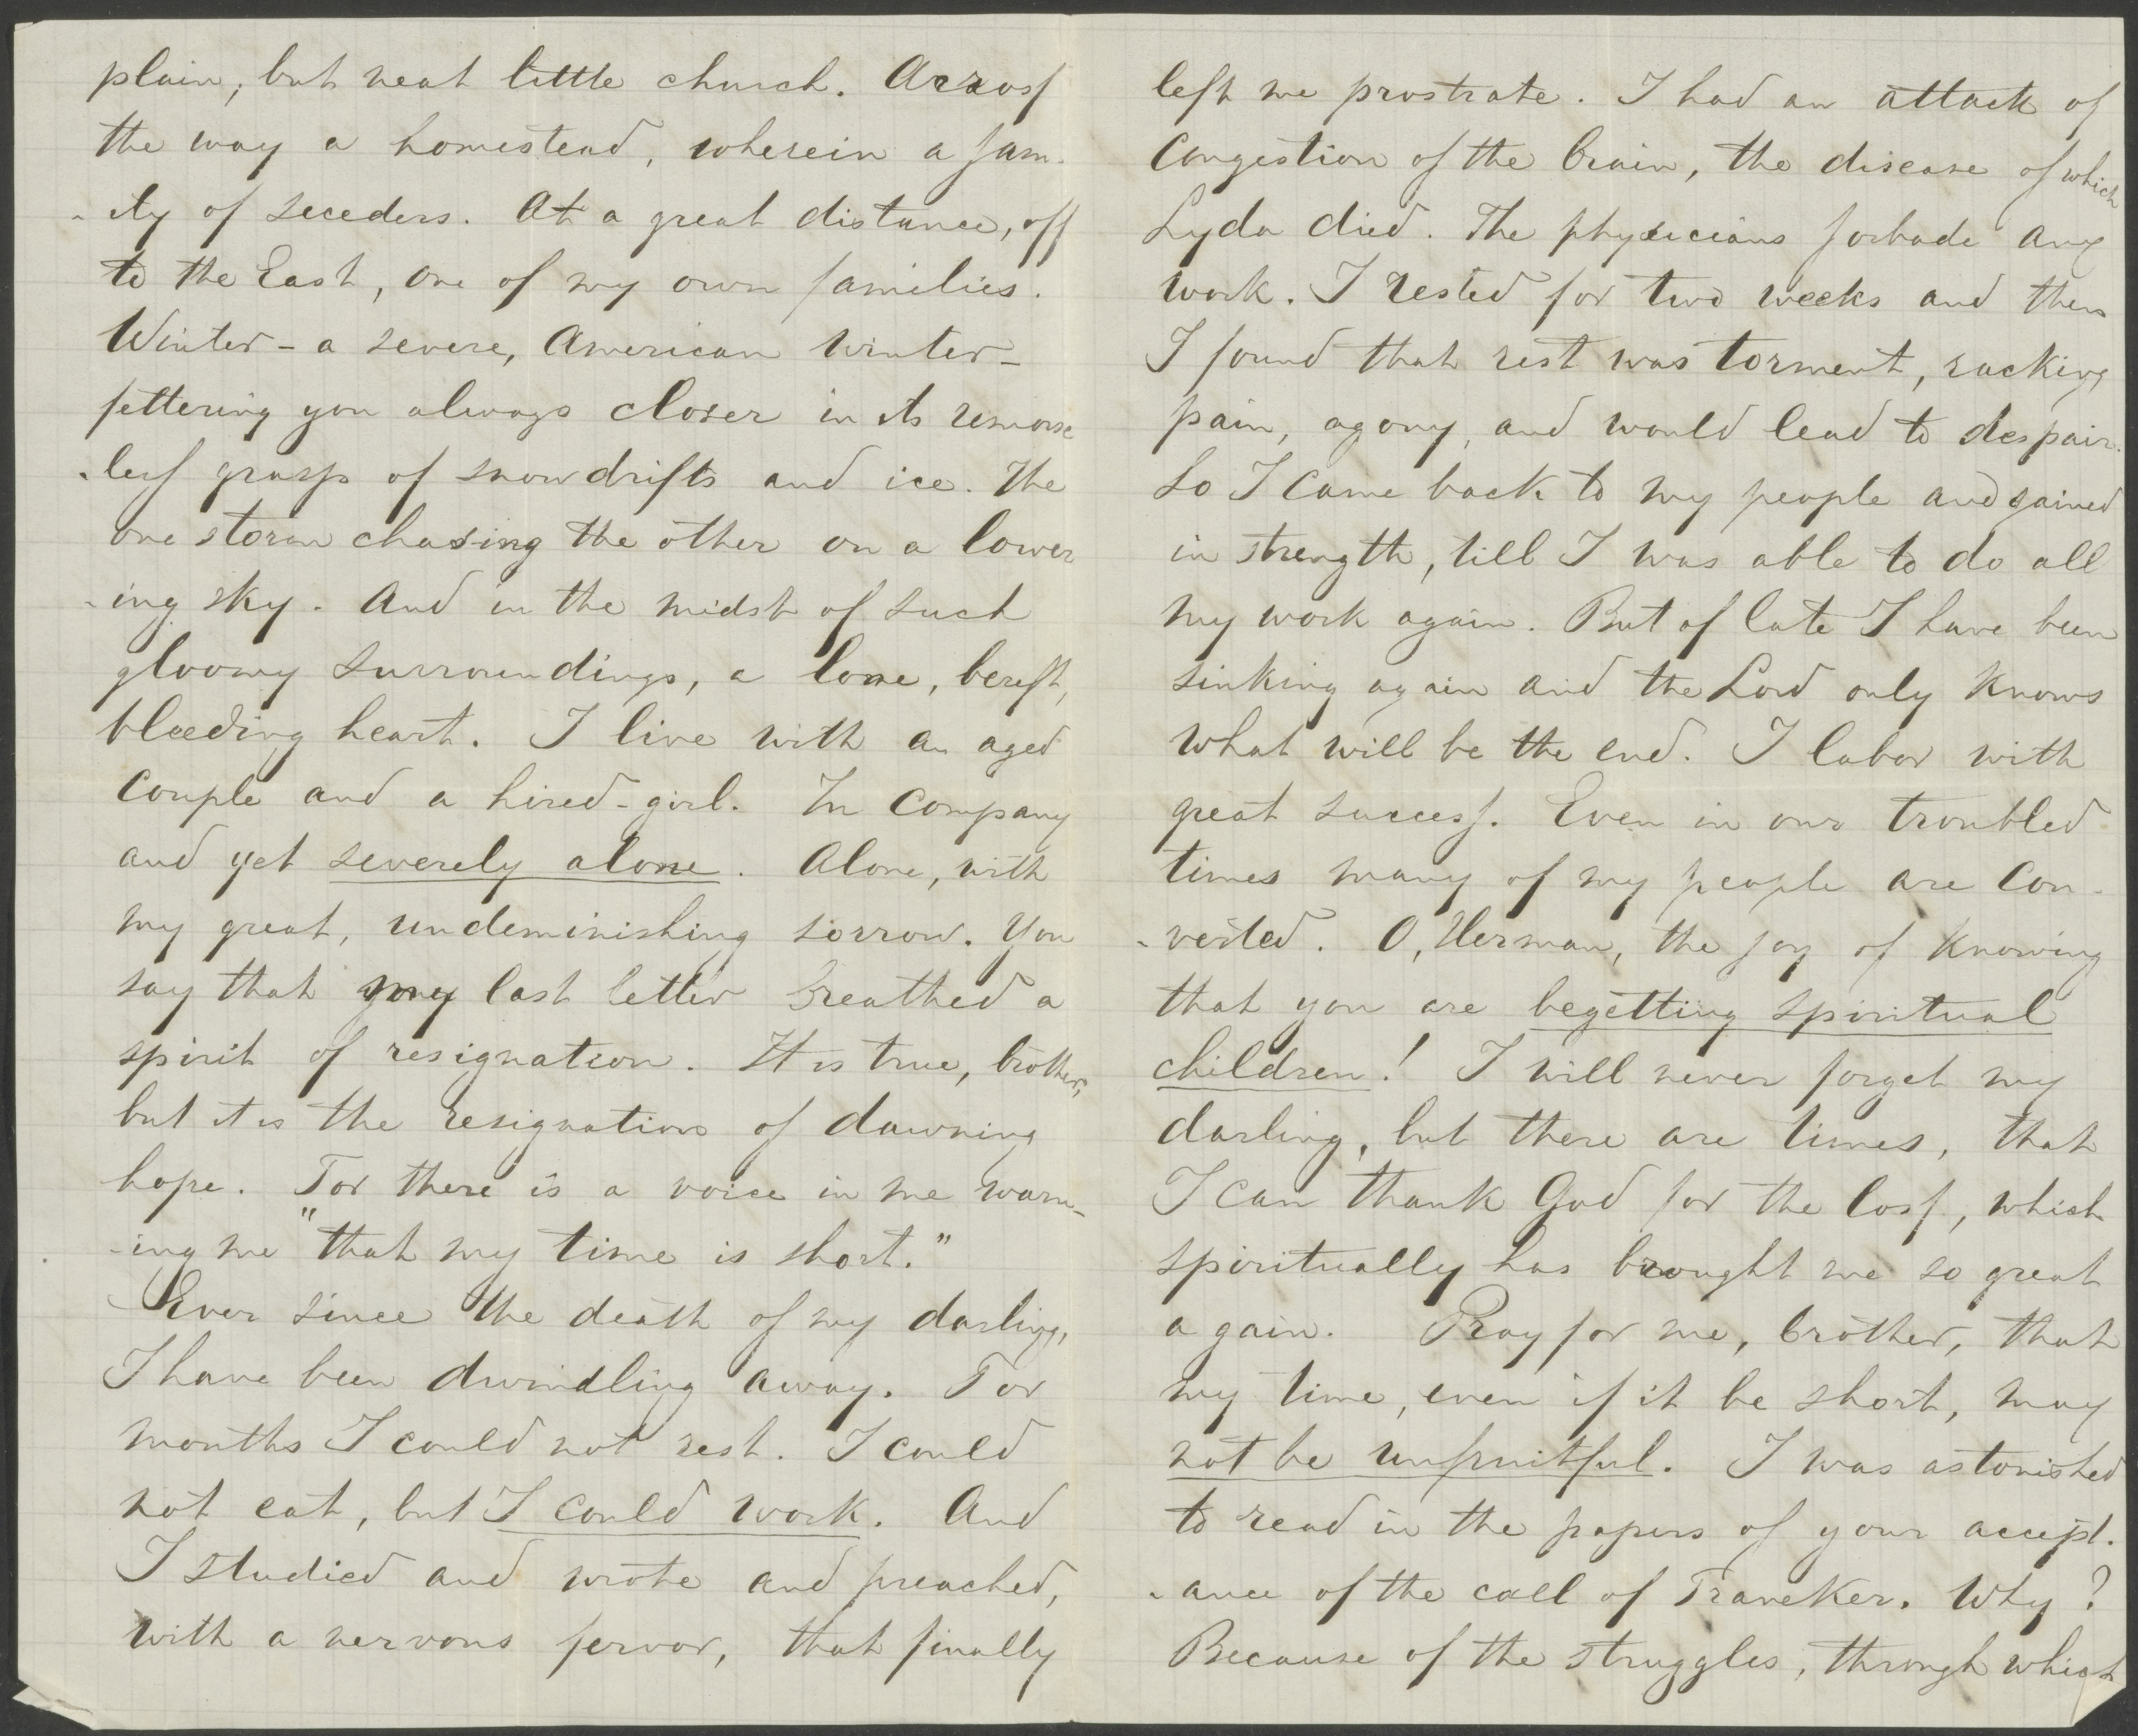 plain, but neat little church. Across
the way a homestead, wherein a fam-
-ily of seceders. At a great distance, off
to the East, one of my own families.
Winter - a severe, American winter -
fettering you always closer in its remorse
-less grasp of snowdrifts and ice. The
one storm chasing the other on a lower
-ing sky. And in the midst of such
gloomy surroundings, a lone, bereft,
bleeding heart. I live with an aged
couple and a hired-girl. In company
and yet severely alone. Alone, with
my great, undeminishing sorrow. You
say that my last letter breathed a
spirit of resignation. It is true, brother,
but it is the resignation of dawning
hope. For there is a voice in me warn-
-ing me "that my time is short."
Ever since the death of my darling,
I have been dwindling away. For
months I could not rest. I could
not eat, but I could work. And
I studied and wrote and preached,
with a nervous fervor, that finally
left me prostrate. I had an attack of
Congestion of the brain, the disease of which
Lyda died. The physicians forbade any
work. I rested for two weeks and then
I found that rest was torment, racking
pain, agony, and would lead to despair.
So I came back to my people and gained
in strength, till I was able to do all
my work again. But of late I have been
sinking again and the Lord only knows
what will be the end. I labor with
great success. Even in our troubled
times many of my people are con-
-verted. O, Herman, the joy of knowing
that you are begetting spiritual
children! I will never forget my
darling, but there are times, that
I can thank God for the loss, which
spiritually has brought me so great
a gain. Pray for me, brother, that
my time, even if it be short, may
not be unfruitful. I was astonished
to read in the papers of your accept-
-ance of the call of Franeker. Why?
Because of the struggles, through which